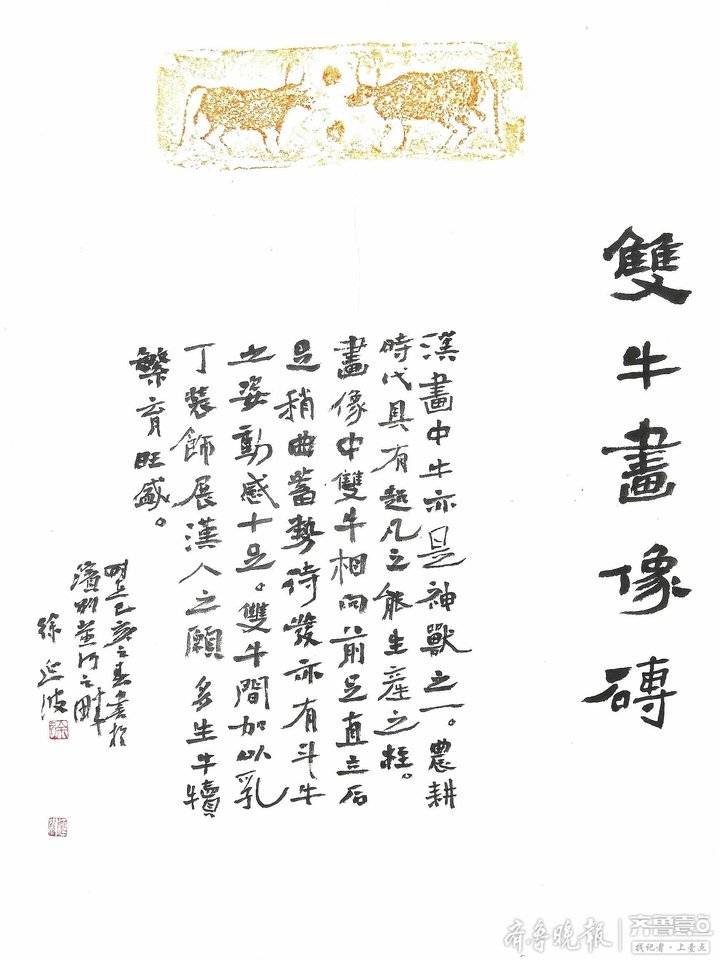 雙牛畫像磚
漢畫中牛亦是神獸之一。農耕
時代具有超凡之能生産之柱。
畫像中雙牛相向前足直立后
足稍曲蓄勢待發亦有斗牛
之姿動感十足。雙牛間加以乳
丁裝飾展漢人之願多生牛犢
繁育旺盛。
己亥之春書於
濱州黄河之畔
徐延波
齐鲁晚报
齐鲁壹点
找记者·上壹点